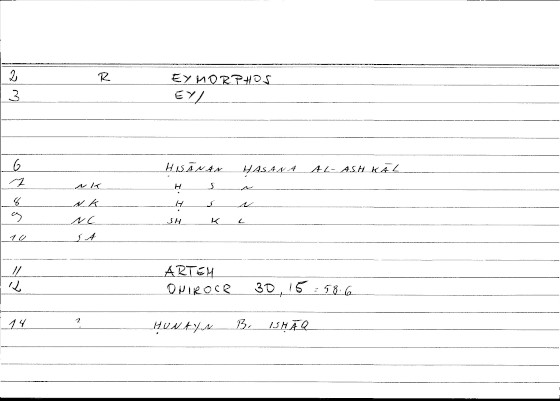 2 R EYMORPHOS
3 EY/
6 ḤISĀNAN ḤASANA AL-ASHKĀL
7 NK Ḥ S N
8 NK Ḥ S N
9 NC SH K L
10 SA
11 ARTEM
12 ONIROCR 30,15:58.6
14 ? ḤUNAYN B. ISḤĀQ